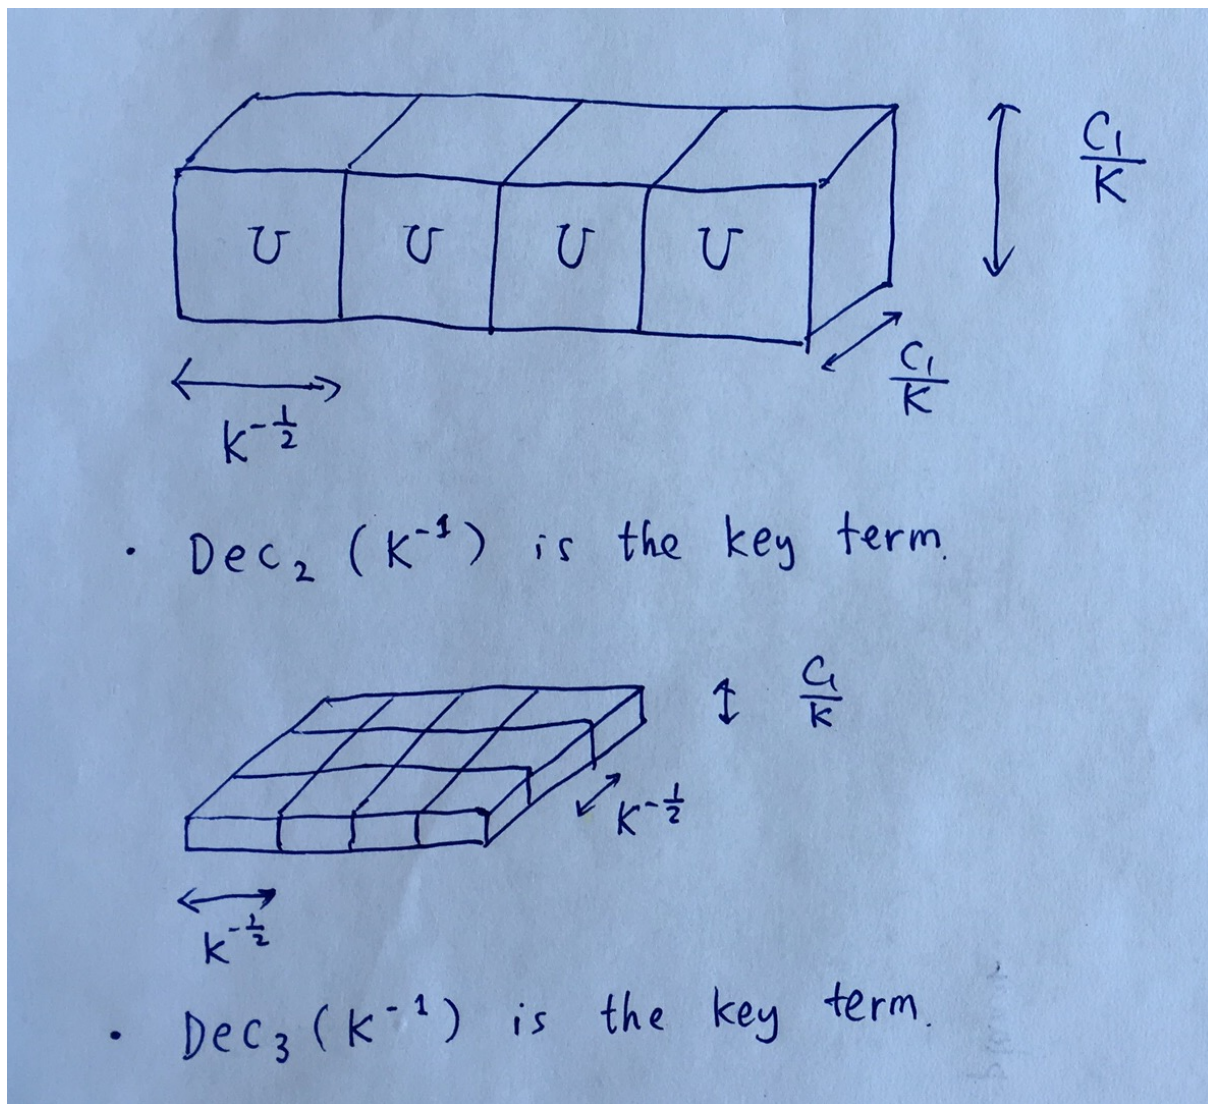 U U U U
C₁/K
C₁/K
K^{-1/2}
· Dec₂ (K⁻¹) is the key term.
C₁/K
K^{-1/2}
K^{-1/2}
· Dec₃ (K⁻¹) is the key term.